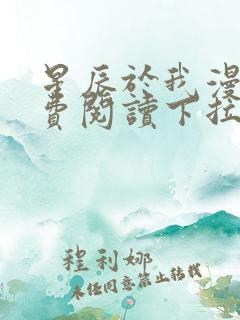 星辰於我漫
費閱讀下拉
程利娜
未经同意禁止转载